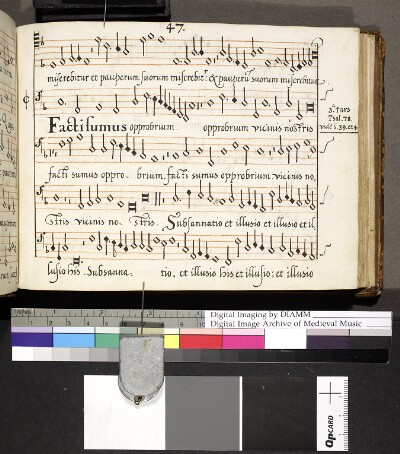 47.
miserebitur et pauperum suorum miserebitr: & pauperũ suorum miserebitur.
Facti sumus opprobrium opprobrium vicinis nostris
2a. Pars
Psal. 78.
facti sumus oppro- brium, facti sumus opprobrium vicinis no,
stris vicinis no- stris. Subsannatio et illusio et illusio et il,
lusio his. Subsanna- tio, et illusio his et illusio: et illusio
inches
Digital Imaging by DIAMM
Digital Image Archive of Medieval Music
QPCARD